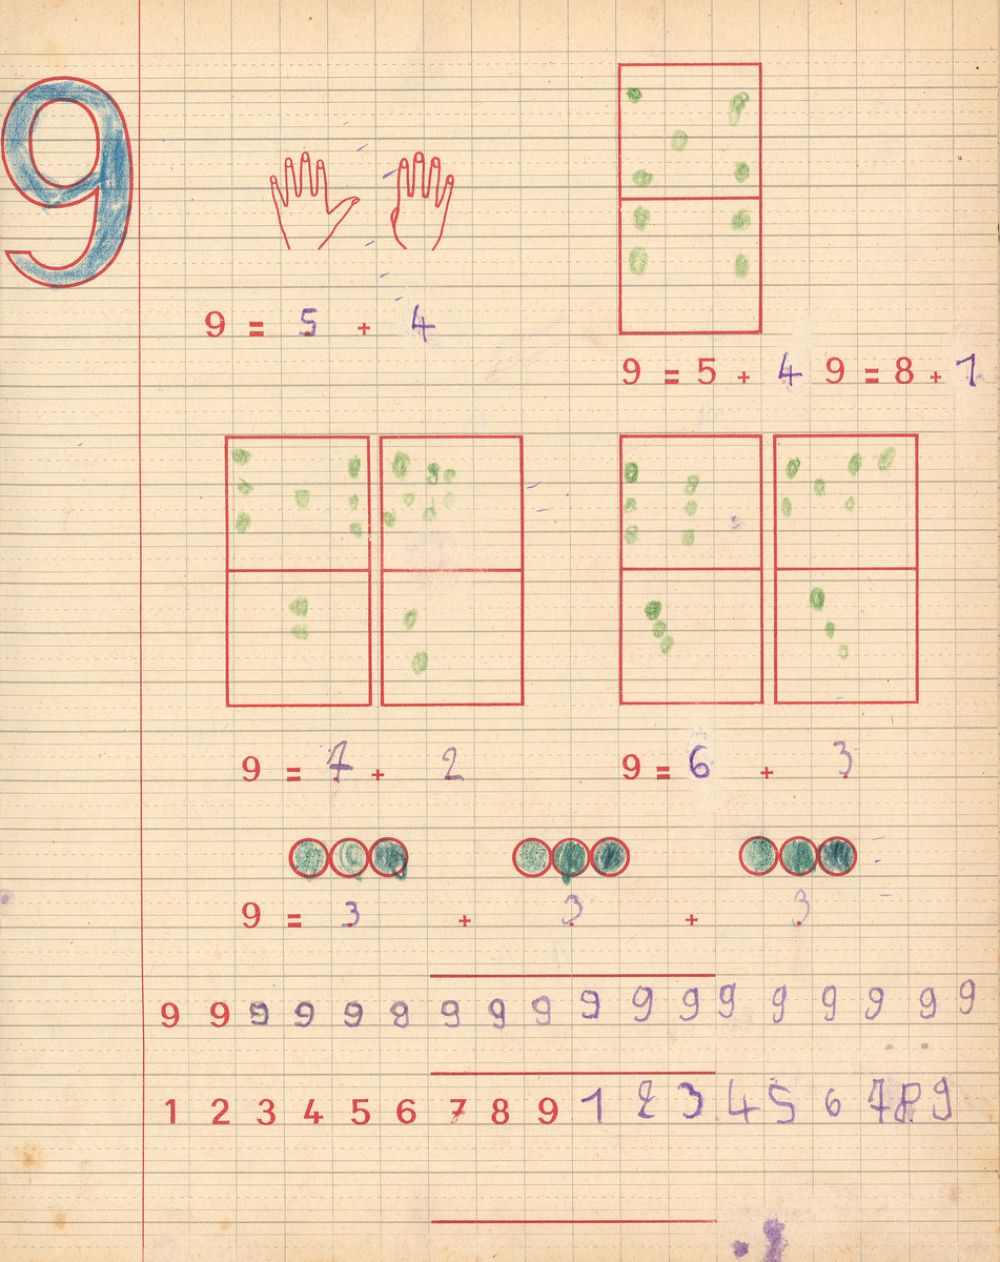 9
9 = 5 + 4
9 = 5 + 4 9 = 8 + 1
9 = 7 + 2 9 = 6 + 3
9 = 3 + 3 + 3
9 9 9 9 9 9 9 9 9 9 9 9 9 9 9 9 9 9
1 2 3 4 5 6 7 8 9 1 2 3 4 5 6 7 8 9